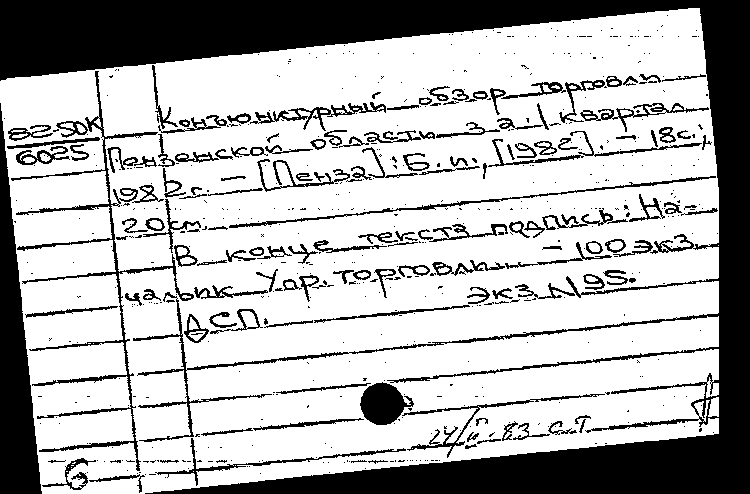 82-50К
6025
Конъюнктурный обзор торговли
Пензенской области за I квартал
1982г. — [Пенза]: Б. и., [1982]. — 18с.;
20см.
В конце текста подпись: На-
чальник Упр. торговли... — 100 экз.
Экз. N 95.
ДСП.
24/II-83 С.Т
6